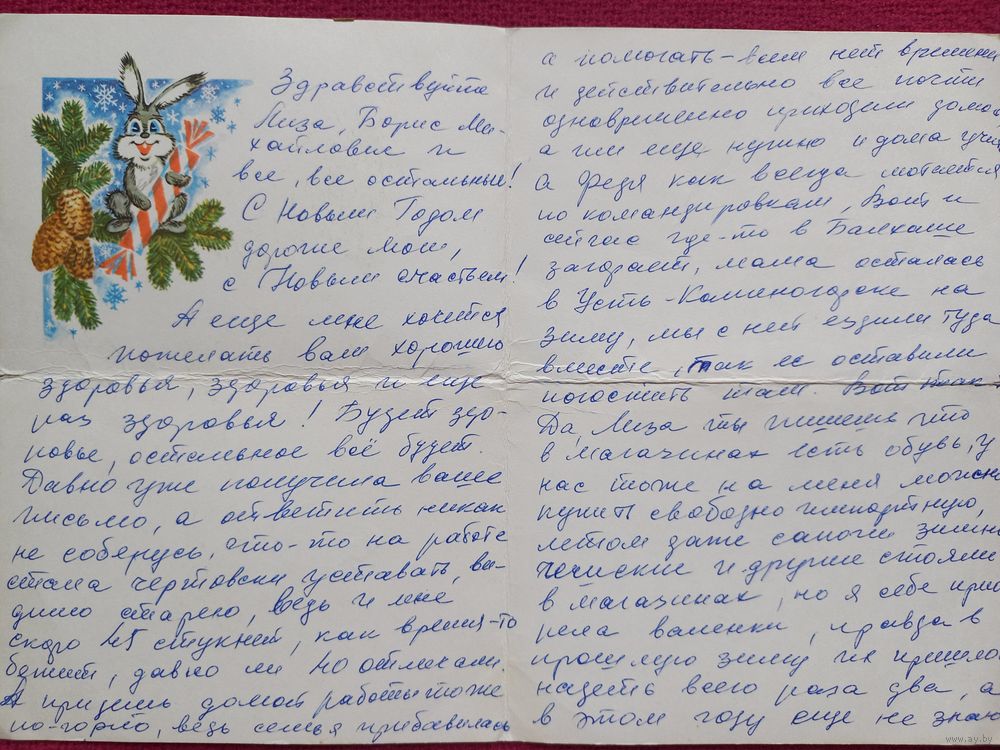 Здравствуйте
Лиза, Борис Ми-
хайлович и
все, все остальные!
С Новым Годом
дорогие мои,
с Новым счастьем!
А еще мне хочется
пожелать вам хорошего
здоровья, здоровья и еще
раз здоровья! Будет здо-
ровье, остальное всё будет.
Давно уже получила ваше
письмо, а ответить никак
не соберусь, что-то на работе
стала чертовски уставать, ви-
димо старею, ведь и мне
скоро 45 стукнет, как время-то
бежит, давно ли 40 отмечали.
А придешь домой работы тоже
по-горло, ведь семья прибавилась
а помогать - всем нет времени
и действительно все почти
одновременно приходим домой
а им еще нужно и дома учи
А Федя как всегда мотается
по командировкам, Вот и
сейчас где-то в Балхаше
загорает, мама осталась
в Усть-Каменогорске на
зиму, мы с ней ездили туда
вместе, так ее оставили
погостить там. Вот так
Да, Лиза ты пишешь что
в магазинах есть обувь, у
нас тоже на меня можно
купить свободно импортную,
летом даже сапоги зимние
чешские и другие стояли
в магазинах, но я себе прио
рела валенки, правда в
прошлую зиму их пришлось
надеть всего раза два, а
в этом году еще не знаю
www.ay.by